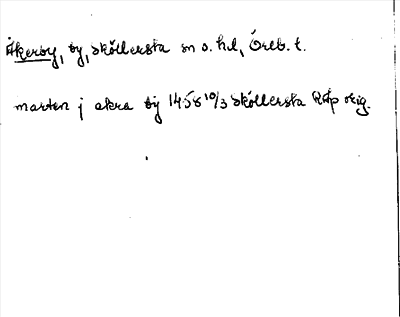 Åkerby, by, Sköllersta sn o. hd, Öreb. l.
marten j akra by 1458 10/3 Sköllersta RAp orig.